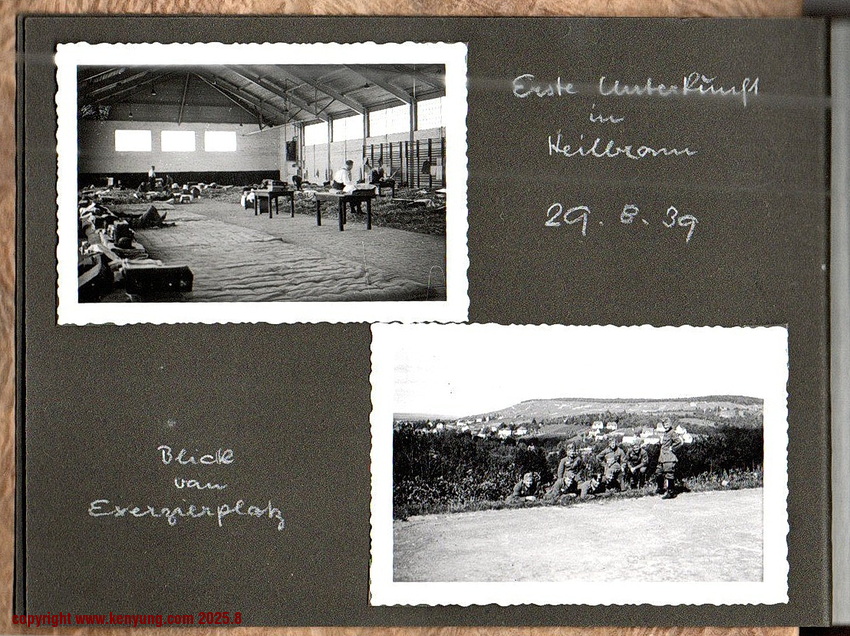 Erste Unterkunft
in
Heilbronn
29. 8. 39
Blick
vom
Exerzierplatz
copyright www.kenyung.com 2025.8